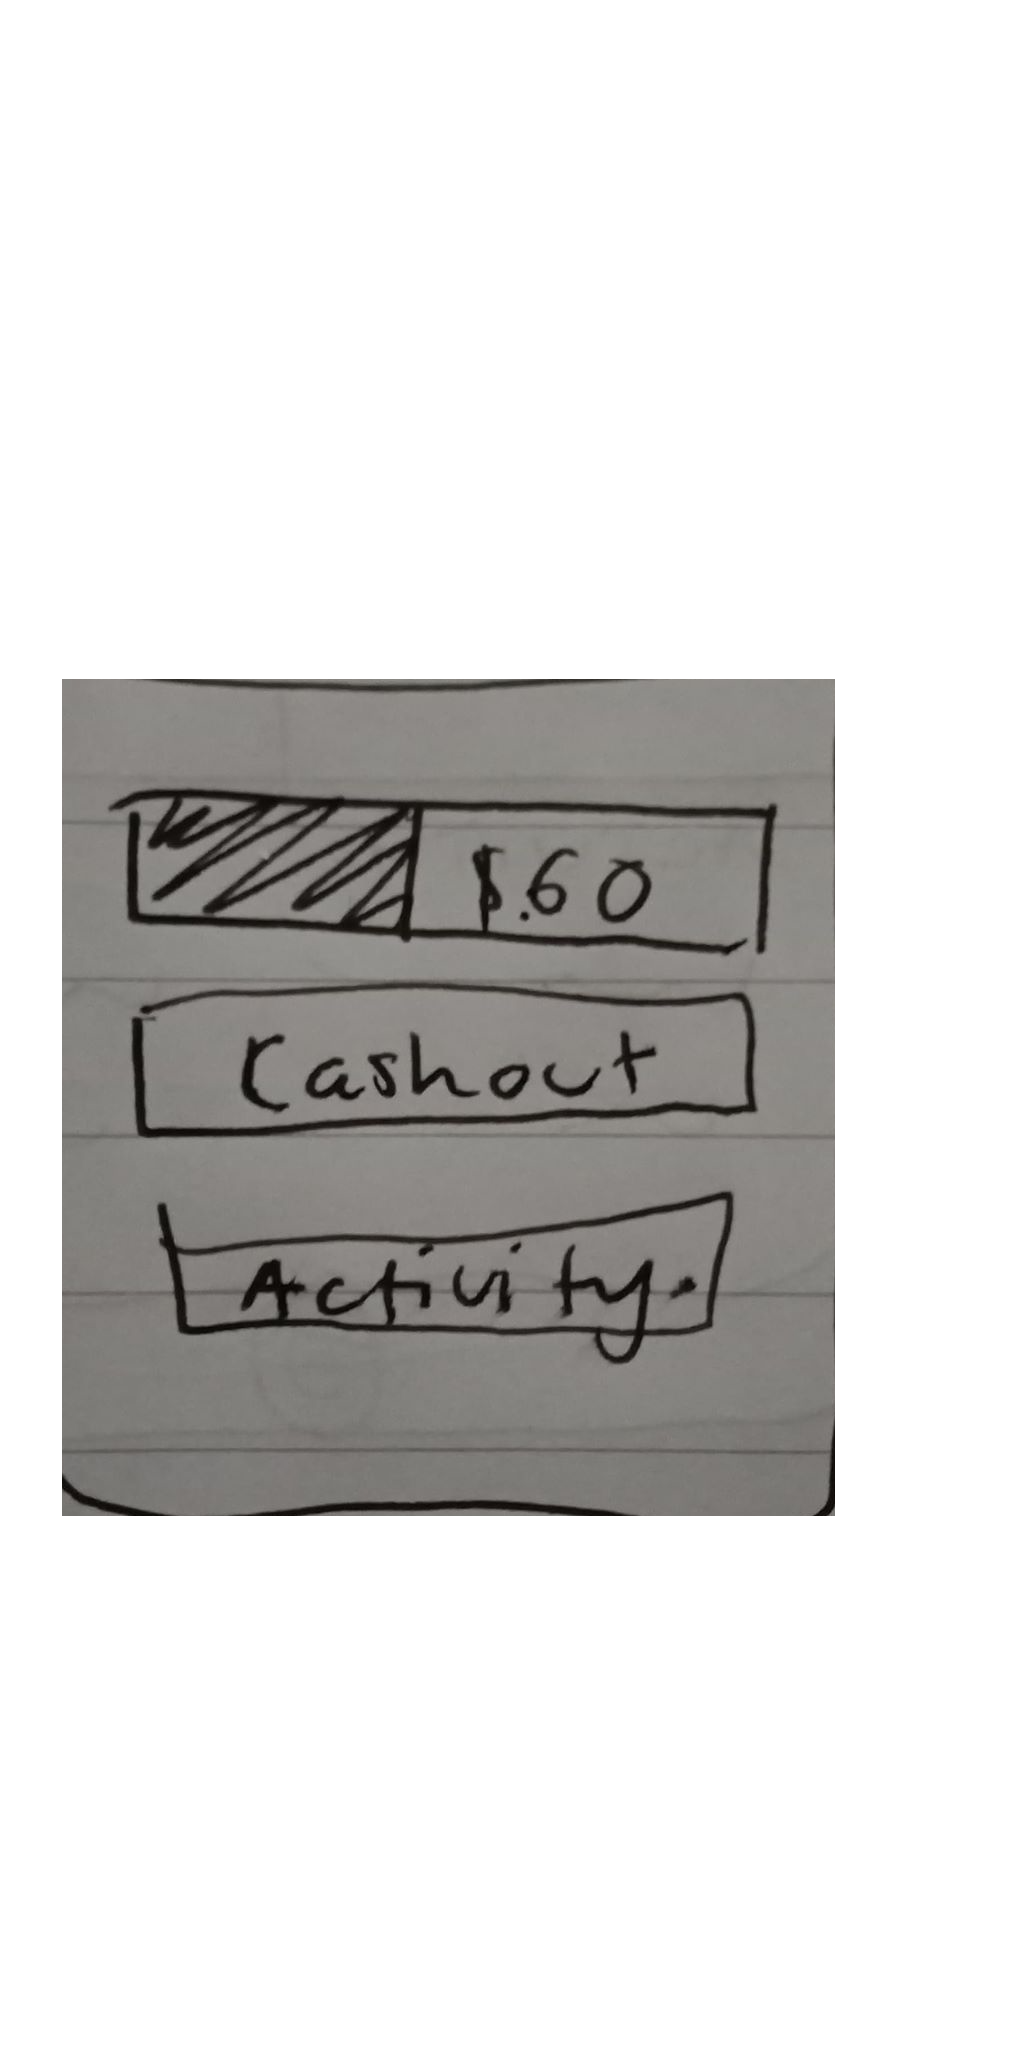 $.60
Cashout
Activity.